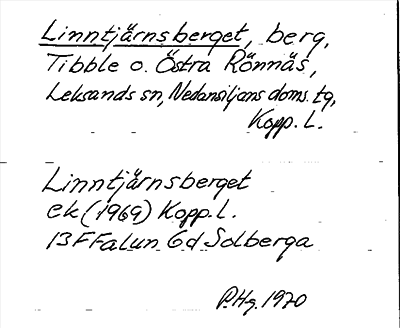 Linntjärnsberget, berg,
Tibble o. Östra Rönnäs,
Leksands sn, Nedansiljans doms. tg,
Kopp. L.
Linntjärnsberget
ek (1969) Kopp. L.
13F Falun 6d Solberga
P.Hg. 1970